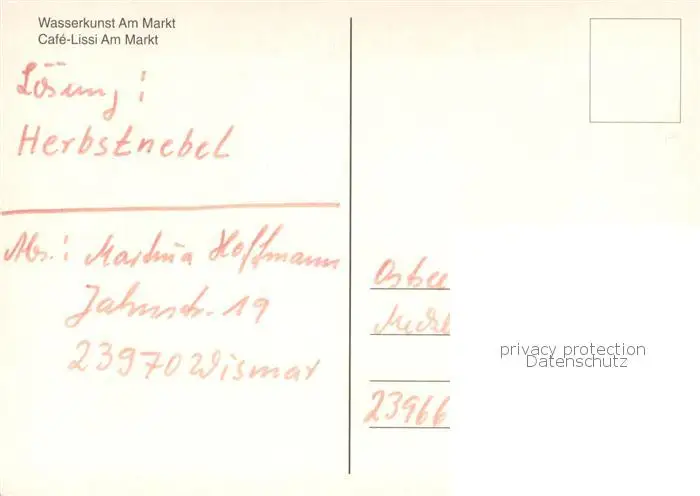 Wasserkunst Am Markt
Café-Lissi Am Markt
Lösung:
Herbstnebel
Abs.: Martina Hoffmann
Jahnstr. 19
23970 Wismar
Ostsee
Meckl
privacy protection
Datenschutz
23966